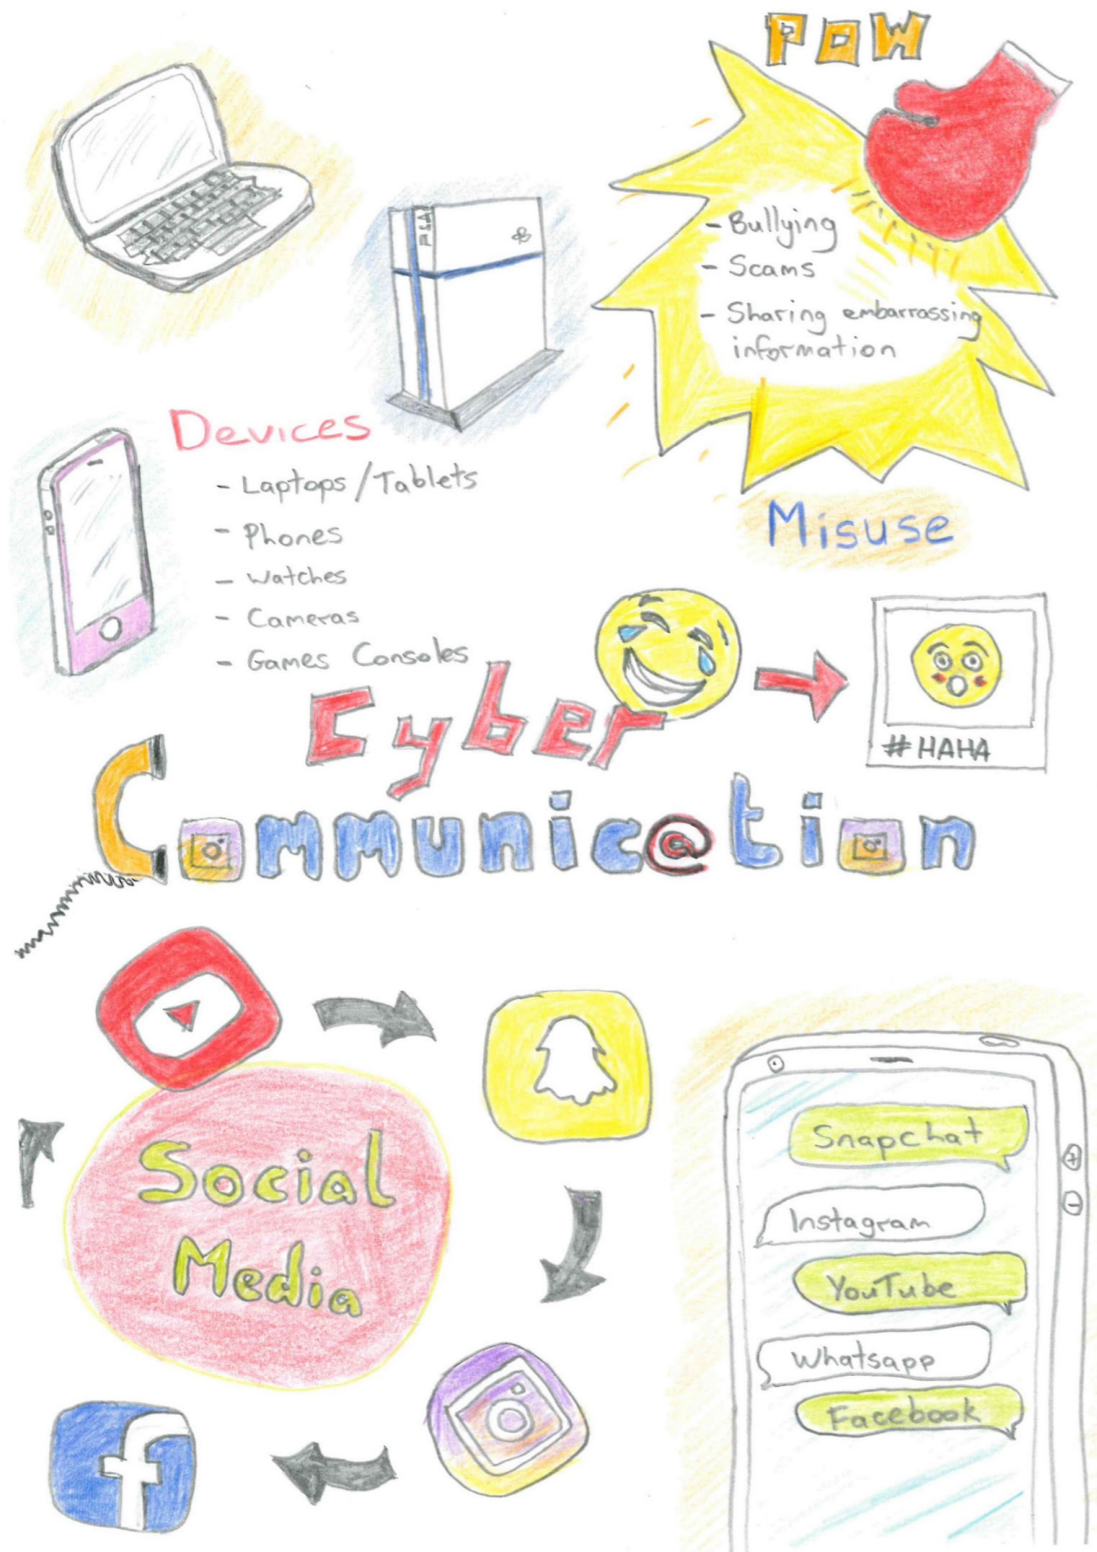 POW
- Bullying
- Scams
- Sharing embarrassing
information
Misuse
Devices
- Laptops/Tablets
- Phones
- Watches
- Cameras
- Games Consoles
Cyber
#HAHA
Communic@tion
Social
Media
Snapchat
Instagram
YouTube
Whatsapp
Facebook